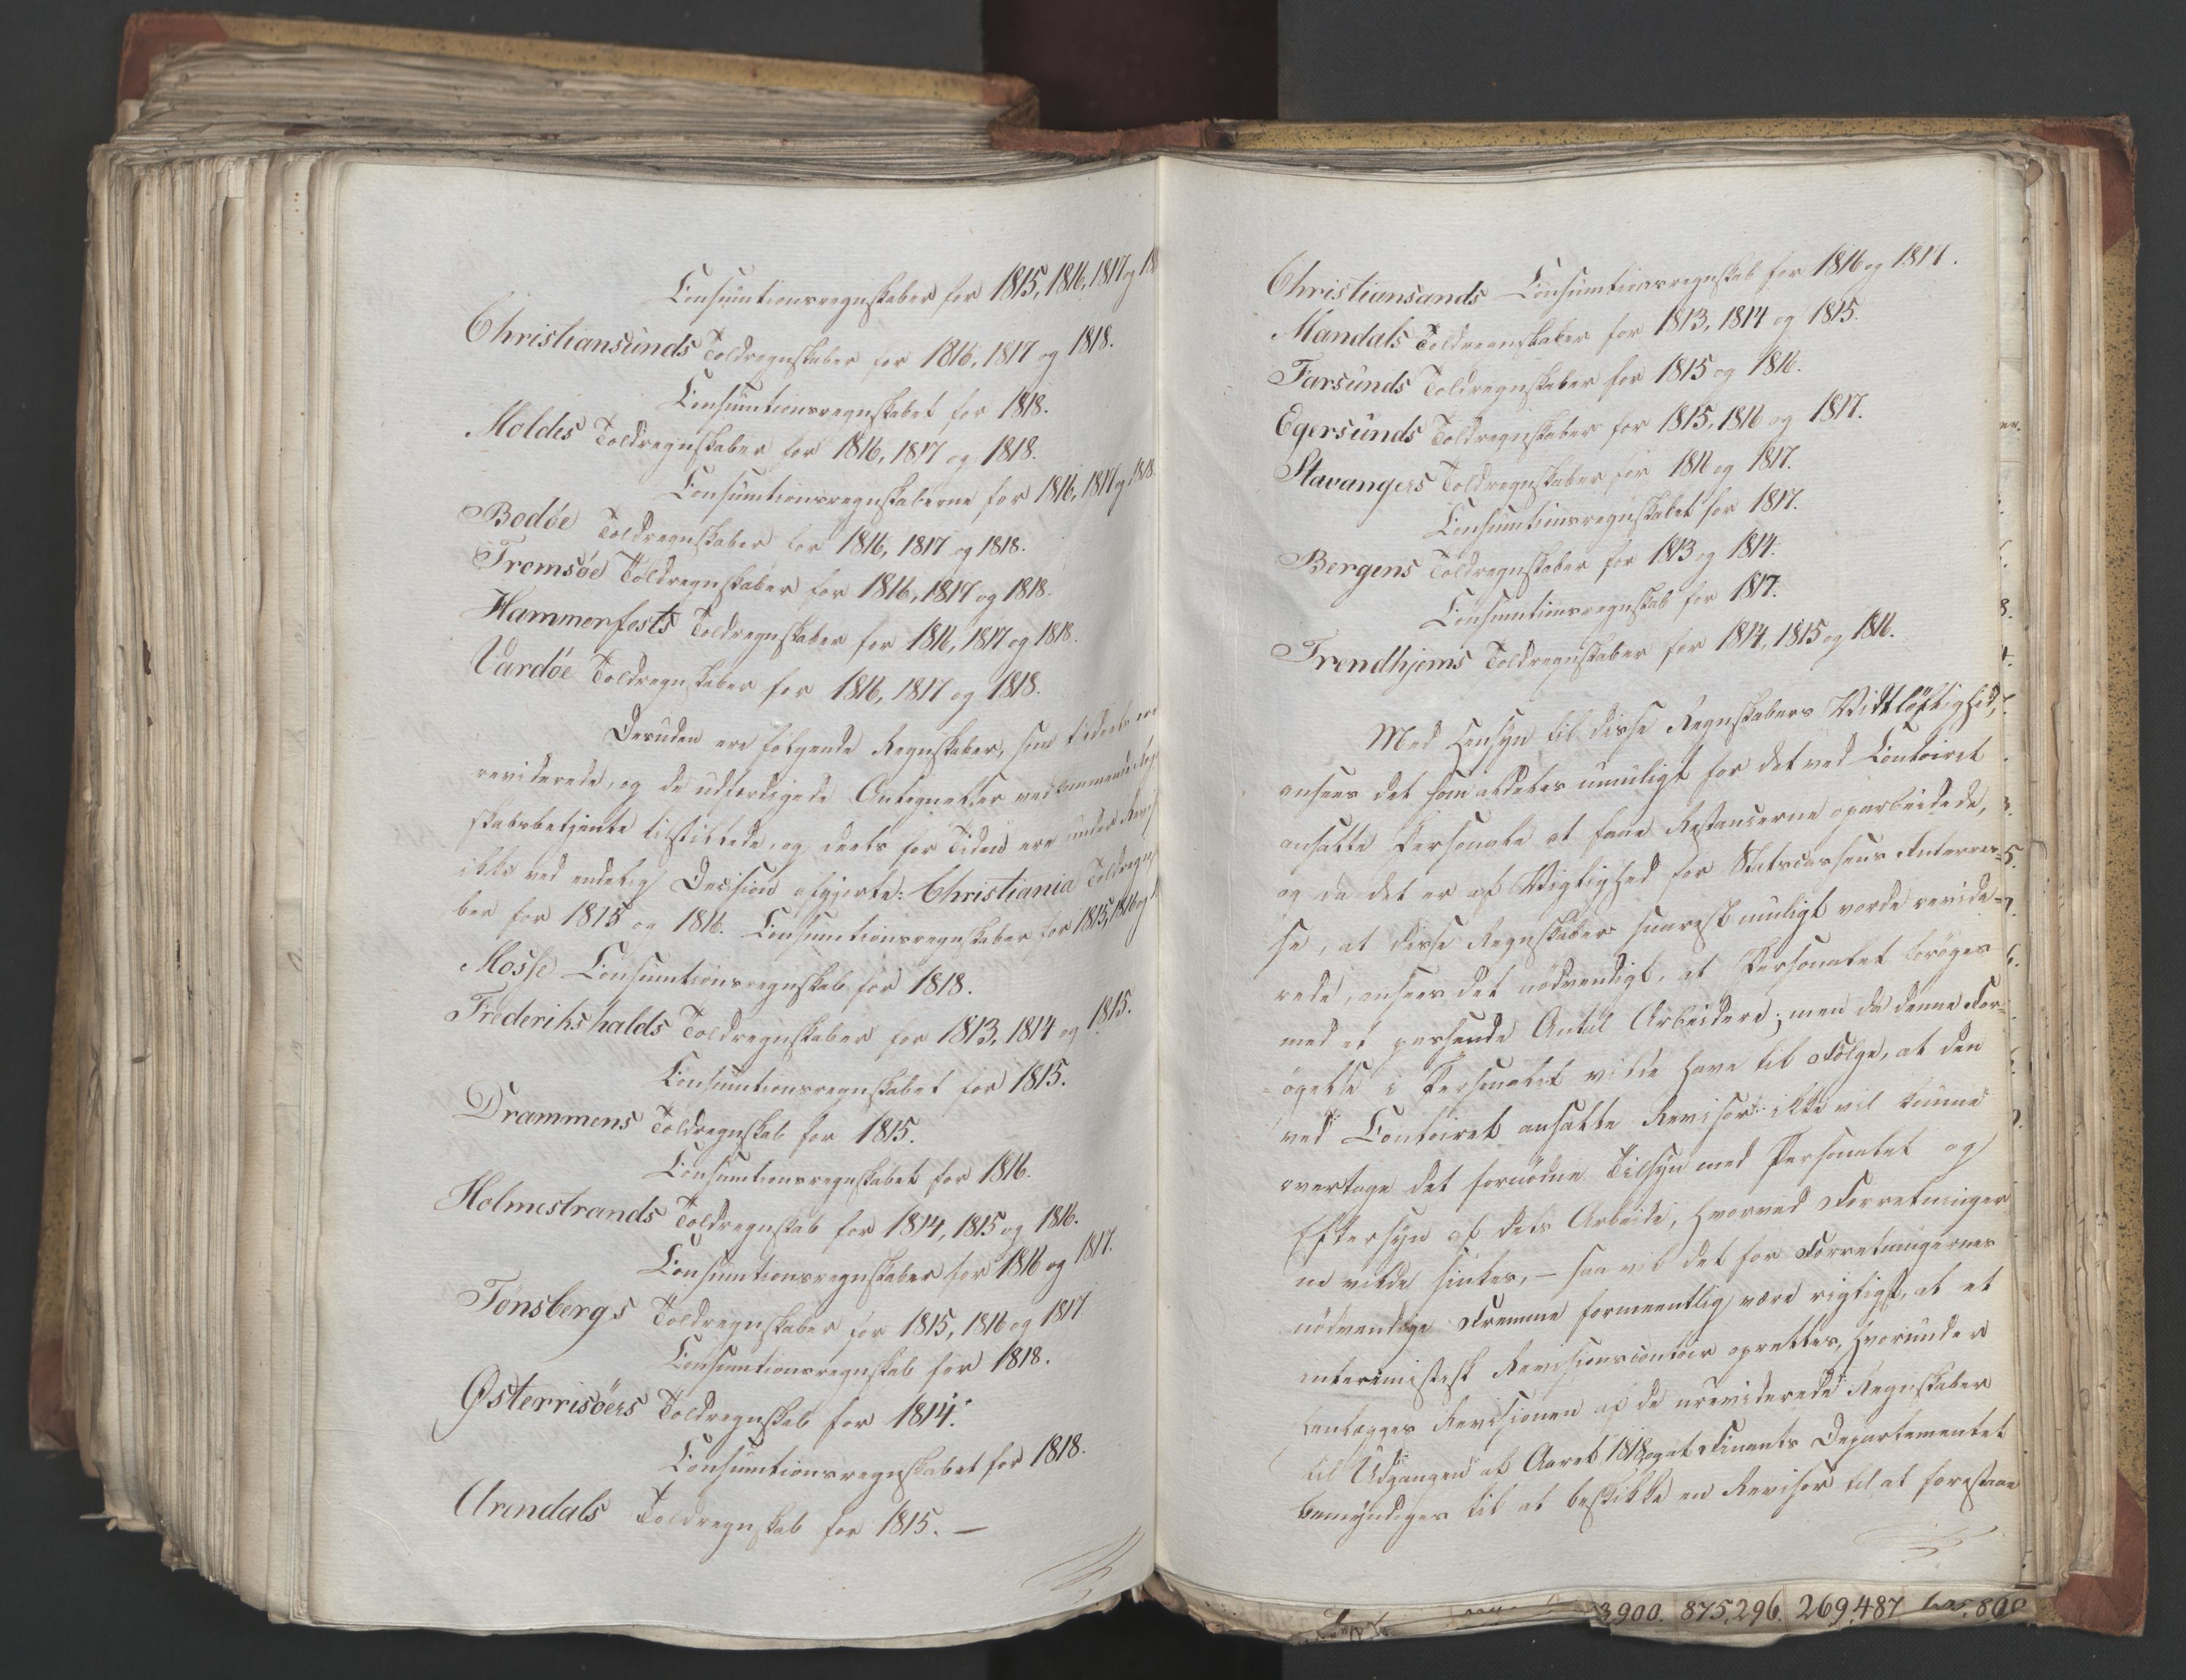 Consumtionsregnskaber for 1815, 1816, 1817 og 18
Christiansunds Toldregnskaber for 1816, 1817 og 1818.
Consumtionsregnskabet for 1818.
Moldes Toldregnskaber for 1816, 1817 og 1818.
Consumtionsregnskaberne for 1816, 1817 og 1818.
Bodöe Toldregnskaber for 1816, 1817 og 1818.
Tromsöe Toldregnskaber for 1816, 1817 og 1818.
Hammerfests Toldregnskaber for 1816, 1817 og 1818.
Vardöe Toldregnskaber for 1816, 1817 og 1818.
Desuden ere følgende Regnskaber, som tildeels ere
reviderede, og de udfærdigede Antegnelser vedkommende Regn
skabsbetjente tilstillede, og deels for Tiden ere under Revis
ikke ved endelig Decision afgjorte: Christiania Toldregnska
ber for 1815 og 1816. Consumtionsregnskaber for 1815, 1816 og 1
Mosse Consumtionsregnskab for 1818.
Frederikshalds Toldregnskaber for 1813, 1814 og 1815.
Consumtionsregnskabet for 1815.
Drammens Toldregnskab for 1815.
Consumtionsregnskabet for 1816.
Holmestrands Toldregnskab for 1814, 1815 og 1816.
Consumtionsregnskaber for 1816 og 1817.
Tønsbergs Toldregnskaber for 1815, 1816 og 1817
Consumtionsregnskab for 1818.
Østerrisöers Toldregnskab for 1814.
Consumtionsregnskabet for 1818.
Arendals Toldregnskab for 1815. —
Christiansands Consumtionsregnskab for 1816 og 1817.
Mandals Toldregnskaber for 1813, 1814 og 1815.
Farsunds Toldregnskaber for 1815 og 1816.
Egersunds Toldregnskaber for 1815, 1816 og 1817.
Stavangers Toldregnskaber for 1816 og 1817.
Consumtionsregnskabet for 1817.
Bergens Toldregnskaber for 1813 og 1814.
Consumtionsregnskab for 1817.
Trondhjems Toldregnskaber for 1814, 1815 og 1816.
Med Hensyn til disse Regnskabers Vidtløftighed,
ansees det som aldeles umuligt for det ved Contoiret
ansatte Personale at faae Restancerne oparbeidede,
og da det er af Vigtighed for Statscassens Interres-
se, at disse Regnskaber snarest muligt vorde revide-
rede, ansees det nödvendigt, at Personalet forøges
med et passende Antal Arbeidere; men da denne For-
øgelse i Personalet vilde have til Følge, at den
ved Contoiret ansatte Revisor ikke vil kunne
overtage det fornødne Tilsyn med Personalet og
Eftersyn af dets Arbeide, hvorved Forretninger
ne vilde sinkes, — saa vil det for Forretningernes
nödvendige Fremme formeentlig være rigtigst, at et
interimistisk Revisionscontoir oprettes, hvorunder
henlægges Revisionen af de ureviderede Regnskaber
til Udgangen af Aaret 1818, og at Finants Departementet
bemyndiges til at beskikke en Revisor til at forestaae
3,900. 875,296. 269,487